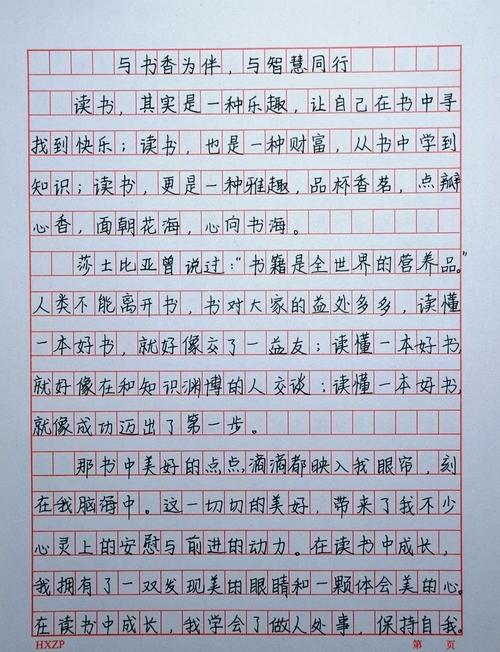 与书香为伴，与智慧同行
读书，其实是一种乐趣，让自己在书中寻
找到快乐；读书，也是一种财富，从书中学到
知识；读书，更是一种雅趣，品杯香茗，点瓣
心香，面朝花海，心向书海。
莎士比亚曾说过：“书籍是全世界的营养品。”
人类不能离开书，书对大家的益处多多，读懂
一本好书，就好像交了一益友；读懂一本好书，
就好像在和知识渊博的人交谈；读懂一本好书，
就像成功迈出了第一步。
那书中美好的点点滴滴都映入我眼帘，刻
在我脑海中。这一切切的美好，带来了我不少
心灵上的安慰与前进的动力。在读书中成长，
我拥有了一双发现美的眼睛和一颗体会美的心。
在读书中成长，我学会了做人处事，保持自我。
HXZP 第 页